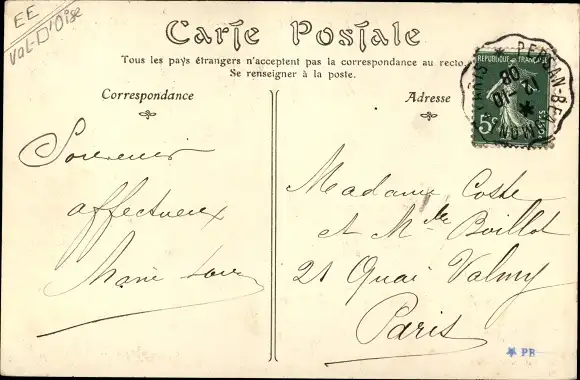 EE
Val-D'Oise
Carte Postale
Tous les pays étrangers n'acceptent pas la correspondance au recto.
Se renseigner à la poste.
Correspondance
Souvenir
affectueux
Marie
Adresse
Madame Coste
et Mlle Boillot
21 Quai Valmy
Paris
REPUBLIQUE FRANÇAISE
5c
POSTES
PERSAN-BEAUMONT
PARIS
PB